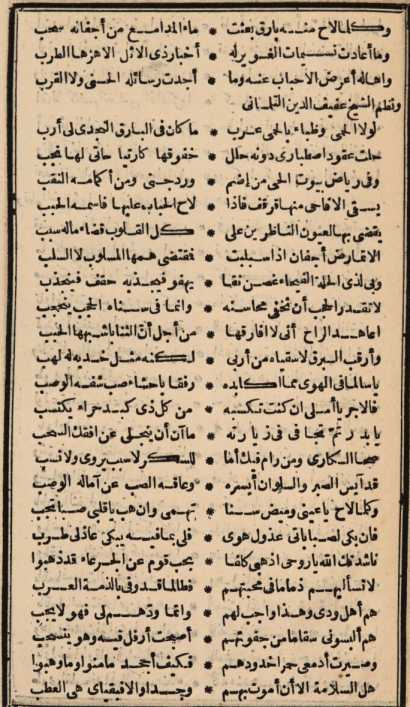 وكلما لاح منه بارق بعثت * ماء المدامع من أجفانه سحب
وما أعادت نسيمات الغوير له * أخبار ذى الاثل الاهزها الطرب
واها له أعرض الاحباب عنه وما * أجدت رسائله الحسنى ولا القرب
ونظم الشيخ عفيف الدين التلمسانى
لولا الحمى وظباء بالحمى عرب * ما كان فى البارق النجدى لى أرب
حلت عقود اصطبارى دونه حلل * خفوقها كارتياحاتى لها تجب
وفى رياض بيوت الحى من إضم * ورد جنى ومن أكمامه النقب
يسقى الاقاحى منها قرقف فاذا * لاح الحباب عليها فاسمه الحبب
يقضى بها لعيون الناظرين على * كل القلوب قضاء ماله سبب
الا تمارض أجفان اذا سلبت * فقتضى همها المسلوب لا السلب
وبى لذى الحلة الفيحاء غصن نقا * يهفو فيجذبه حقف فينجذب
لا تقدر الحجب أن تخفى محاسنه * وانما فى سناه الحجب يتحجب
اعاهد الراح أنى لا افارقها * من أجل أن الثنايا شبهها الحبب
وأرقب البرق لا سقياه من أربى * لكنه مثل خديه له لهب
يا سالما فى الهوى مما اكابده * رفقا باحشاء صب شفه الوصب
فالاجر يا أملى ان كنت تكسبه * من كل ذى كبد حراء يكتسب
يا بدر تم تجافى فى زيارته * ما آن أن ينجلى عن افقك السحب
صحا السكارى ومن رام فيك أما * للسكر لا سبب يروى ولا نسب
قد آيس الصبر والسلوان أيسره * وعاقه الصب عن آماله الوصب
وكلما لاح يا عينى وميض سنا * تهمى وان هب يا قلبى صبا تجب
فان بكى لصباباتى عذول هوى * فلى بما فيه يبكى عاذلى طرب
ناشدتك الله يا روحى اذهبى كلفا * بحب قوم عن الجرعاء قد ذهبوا
لا تسأليهم ذماما فى محبتهم * فطالما قد وفى بالذمة العرب
هم أهل ودى وهذا واجب لهم * وانما ودهم لى فهو لا يجب
هم ألبسونى سقاما من جفونهم * أصبحت أرفل فيه وهو ينسحب
وصيرت أدمعى حمرا خدودهم * فكيف أجحد ما منوا وما وهبوا
هل السلامة الا أن أموت بهم * وجدا والا فبقياى هى العطب